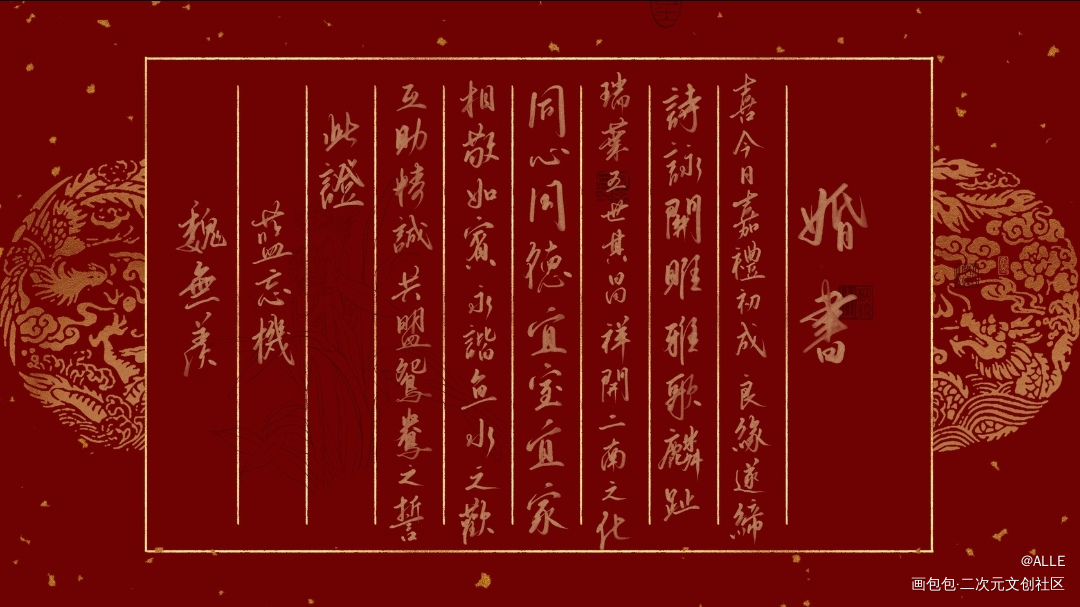 婚書
喜今日嘉禮初成 良緣遂締
詩詠關雎雅歌麟趾
瑞葉五世其昌祥開二南之化
同心同德宜室宜家
相敬如賓永諧魚水之歡
互助情誠共盟鴛鴦之誓
此證
藍忘機
魏無羨
@ALLE
画包包·二次元文创社区